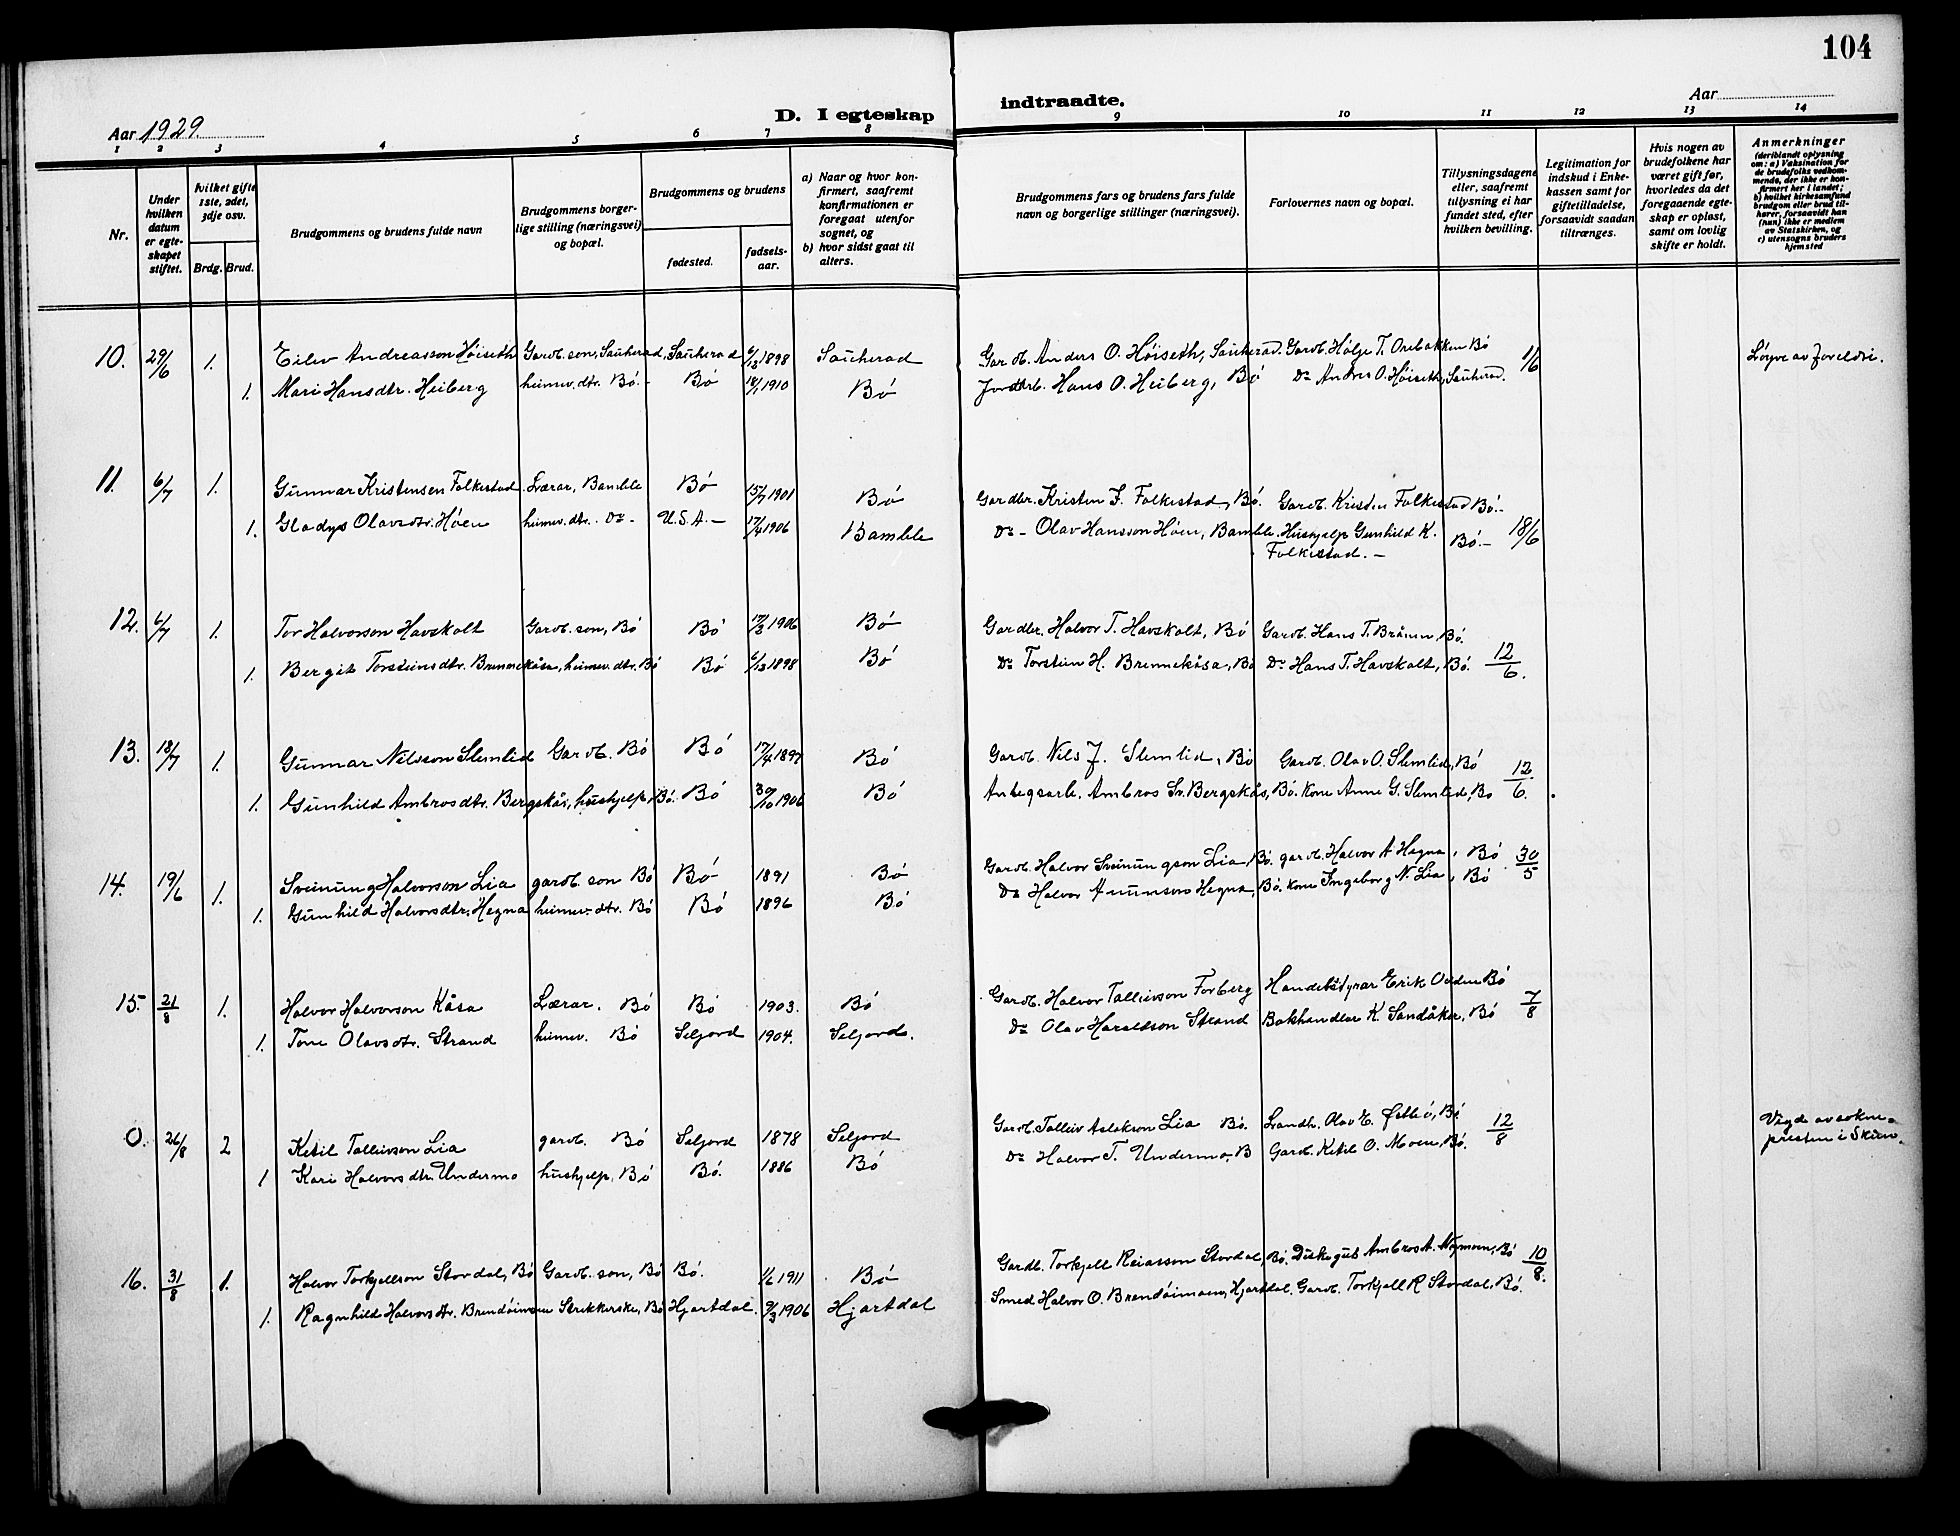 104
Aar 1929.
D. I egteskap
indtraadte.
Aar
1 2 3 4 5 6 7 8 9 10 11 12 13 14
Nr.
Under hvilken datum er egteskapet stiftet.
hvilket gifte 1ste, 2det, 3dje osv.
Brdg. Brud.
Brudgommens og brudens fulde navn
Brudgommens borgerlige stilling (næringsvei) og bopæl.
Brudgommens og brudens
fødested.
fødselsaar.
a) Naar og hvor konfirmert, saafremt konfirmationen er foregaat utenfor sognet, og
b) hvor sidst gaat til alters.
Brudgommens fars og brudens fars fulde navn og borgerlige stillinger (næringsvei).
Forlovernes navn og bopæl.
Tillysningsdagene eller, saafremt tillysning ei har fundet sted, efter hvilken bevilling.
Legitimation for indskud i Enkekassen samt for giftetilladelse, forsaavidt saadan tiltrænges.
Hvis nogen av brudefolkene har været gift før, hvorledes da det foregaaende egteskap er opløst, samt om lovlig skifte er holdt.
Anmerkninger (deriblandt oplysning om: a) Vaksination for de brudefolks vedkommende, der ikke er konfirmert her i landet; b) hvilket kirkesamfund brudgom eller brud tilhører, forsaavidt han (hun) ikke er medlem av Statskirken, og c) utensogns bruders hjemsted
10. 29/6 1. Eilev Andreasson Höiseth Gardb. son, Sauherad, Sauherad 6/12 1898 Sauherad Gardb. Anders O. Höiseth, Sauherad. Gardb. Hølje T. Orebakken Bö 1/6 Löyve av foreldri.
1. Mari Hansdtr. Heiberg heimev. dtr. Bö.- Bö 18/1 1910 Bö Jordbr. Hans O. Heiberg, Bö Do Anders O. Höiseth, Sauherad.
11. 6/7 1. Gunnar Kristensen Folkestad Lærar, Bamble Bö 15/7 1901 Bö Gardbr. Kristen J. Folkestad, Bö. Gardb. Kristen Folkestad Bö.-
1. Gladys Olavsdtr. Höen heimev. dtr. Do- U.S.A.- 17/4 1906 Bamble Do- Olav Hansson Höen, Bamble. Hushjelp Gunhild K. Folkestad.- Bö.- 18/6
12. 6/7 1. Tor Halvorson Havskolt Gardb. son, Bö Bö 17/3 1906 Bö Gardbr. Halvor T. Havskolt, Bö Gardb. Hans T. Bråum, Bö.
1. Bergit Torsteinsdtr. Brennekåsa, heimev. dtr. Bö Bö 6/12 1898 Bö Do Torstein H. Brennekåsa, Bö Do Hans T. Havskolt, Bö. 12/6.
13. 18/7 1. Gunnar Nilsson Slemlid Gardb. Bö Bö 17/4 1897 Bö Gardb. Nils J. Slemlid, Bö Gardb. Olav O. Slemlid, Bö 12/6.
1. Gunhild Ambrosdtr. Bergskås, hushjelp, Bö. Bö 30/10 1906 Bö Anlegsarb. Ambros Sv. Bergskås, Bö. Kone Anne G. Slemlid, Bö
14. 19/6 1. Sveinung Halvorson Lia gardb. son Bö Bö 1891 Bö Gardb. Halvor Sveinungson Lia, Bö. gardb. Halvor A Hegna, Bö 30/5
1. Gunhild Halvorsdtr. Hegna heimev. dtr. Bö Bö 1896 Bö Do Halvor Amunson Hegna, Bö. Kone Ingeborg N. Lia, Bö
15. 21/8 1. Halvor Halvorson Kåsa Lærar. Bö Bö 1903. Bö Gardb. Halvor Tallivson Forberg Handelstyrar Erik Odden Bö 7/8
1. Tone Olavsdtr. Strand heimev. Bö Seljord 1904. Seljord. Do Olav Haraldson Strand Bokhandlar K. Sandåker, Bö
0. 26/8 2 Ketil Tallivson Lia gardb. Bö Seljord 1878 Seljord Gardb. Talleiv Aslakson Lia Bö. Landh. Olav E. Østbö, Bö 12/8 Vigde av sokne-
1 Kari Halvorsdtr. Undermo hushjelp, Bö Bö. 1886 Bö Do Halvor T. Undermo, B Gardb. Ketil O. Moen, Bö. presten i Skien.
16. 31/8 1. Halvor Torkjellson Stordal, Bö Gardb. son, Bö Bö. 1/6 1911 Bö Gardb. Torkjell Reiasson Stordal, Bö, Ambros A. Bö 10/8.
1. Ragnhild Halvorsdtr. Brendöimoen Strikkerske, Bö Hjartdal. 9/3 1906 Hjartdal Smed Halvor O. Brendöimoen, Hjartdal. Gardb. Torkjell R Stordal, Bö.